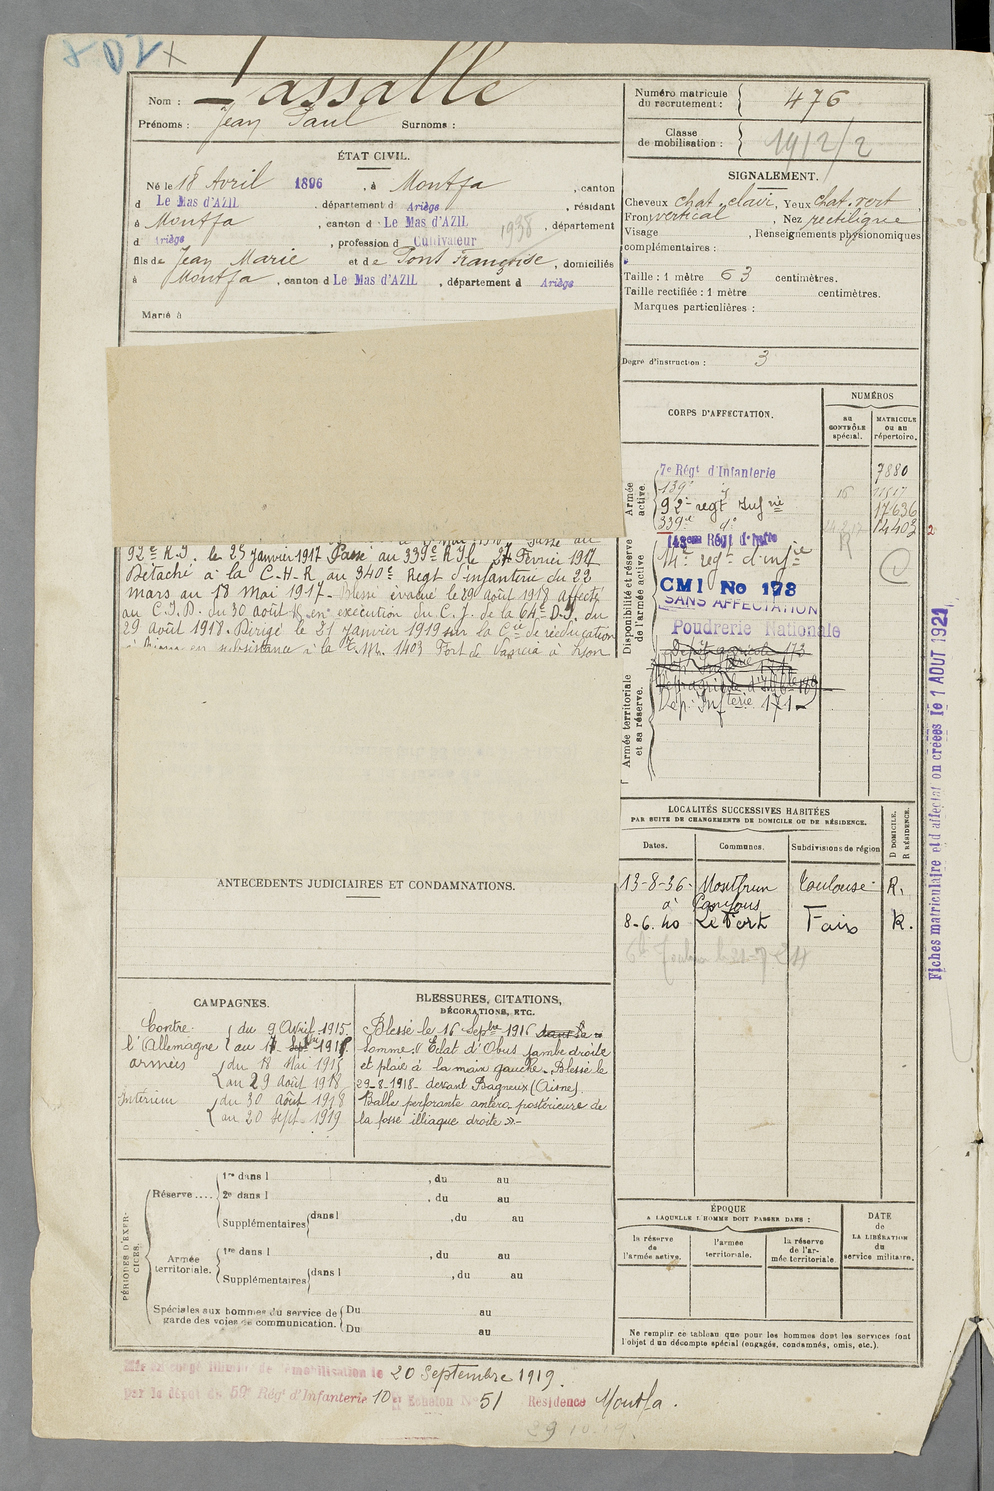 Nom : Lassalle
Prénoms : Jean Paul Surnoms :
ÉTAT CIVIL.
Né le 18 Avril 1896, à Montfa, canton
d Le Mas d'AZIL, département d Ariège, résidant
à Montfa, canton d Le Mas d'AZIL, département
d Ariège, profession d Cultivateur 1938
fils de Jean Marie et de Pont Françoise, domiciliés
à Montfa, canton d Le Mas d'AZIL, département d Ariège
Marié à
Numéro matricule du recrutement : 476
Classe de mobilisation : 1912/2
SIGNALEMENT.
Cheveux chat. clair, Yeux chat. vert
Front vertical, Nez rectiligne
Visage , Renseignements physionomiques
complémentaires :
Taille : 1 mètre 63 centimètres.
Taille rectifiée : 1 mètre centimètres.
Marques particulières :
Degré d'instruction : 3
CORPS D'AFFECTATION.
NUMÉROS
au CONTRÔLE spécial.
MATRICULE ou au répertoire.
Armée active.
7e Régt d'Infanterie 7880
139e
92e regt Infrie 17636
339e do 14403
Disponibilité et réserve de l'armée active
143eme Régt d'Infie
14e regt d'infie
CMI No 173
SANS AFFECTATION
Poudrerie Nationale
Armée territoriale et sa réserve.
Dep. Infterie 171
92e R.I. le 25 janvier 1917 Passé au 339e R.I le 27 Fevrier 1917
Détaché à la C-H-R au 340e Regt d'infanterie du 22
mars au 18 mai 1917 - Blessé évacué le 29 août 1918 affecté
au C.I.D. du 30 août 18, en exécution du C.J. de la 64e D.I. du
29 août 1918. Dirigé le 21 janvier 1919 sur la Cie de rééducation
en subsistance à la 1403 Fort de à Lyon
ANTÉCÉDENTS JUDICIAIRES ET CONDAMNATIONS.
LOCALITÉS SUCCESSIVES HABITÉES
PAR SUITE DE CHANGEMENTS DE DOMICILE OU DE RÉSIDENCE.
Dates. Communes. Subdivisions de région D DOMICILE. R RÉSIDENCE.
13-8-36- Montbrun Toulouse- R.
8-6. 40 Le Fort Foix R.
CAMPAGNES.
Contre l'Allemagne du 9 Avril 1915
au 17 Septbre 1916
armées du 18 Mai 1917
au 29 août 1918
Intérieur du 30 Août 1918
au 20 Sept. 1919
BLESSURES, CITATIONS,
DÉCORATIONS, ETC.
Blessé le 16 Septbre 1916 dans la
Somme « Eclat d'Obus jambe droite
et plaie à la main gauche. Blessé le
29-8-1918- devant Bagneux (Aisne).
Balle perforante antéro postérieure de
la fosse illiaque droite ».-
PÉRIODES D'EXERCICES.
Réserve.... 1re dans l , du au
2e dans l , du au
Supplémentaires dans l , du au
Armée territoriale. 1re dans l , du au
Supplémentaires dans l , du au
Spéciales aux hommes du service de garde des voies de communication. Du au
Du au
ÉPOQUE
A LAQUELLE L'HOMME DOIT PASSER DANS :
la réserve de l'armée active.
l'armée territoriale.
la réserve de l'armée territoriale.
DATE de LA LIBÉRATION du service militaire.
Ne remplir ce tableau que pour les hommes dont les services font
l'objet d'un décompte spécial (engagés, condamnés, omis, etc.).
Mis en congé illimité de démobilisation le 20 Septembre 1919.
par le dépôt du 59e Régt d'Infanterie 10e Echelon No 51 Résidence Montfa.
29 10.19.
Fiches matriculaire et d'affectation créées le 1 AOUT 1921